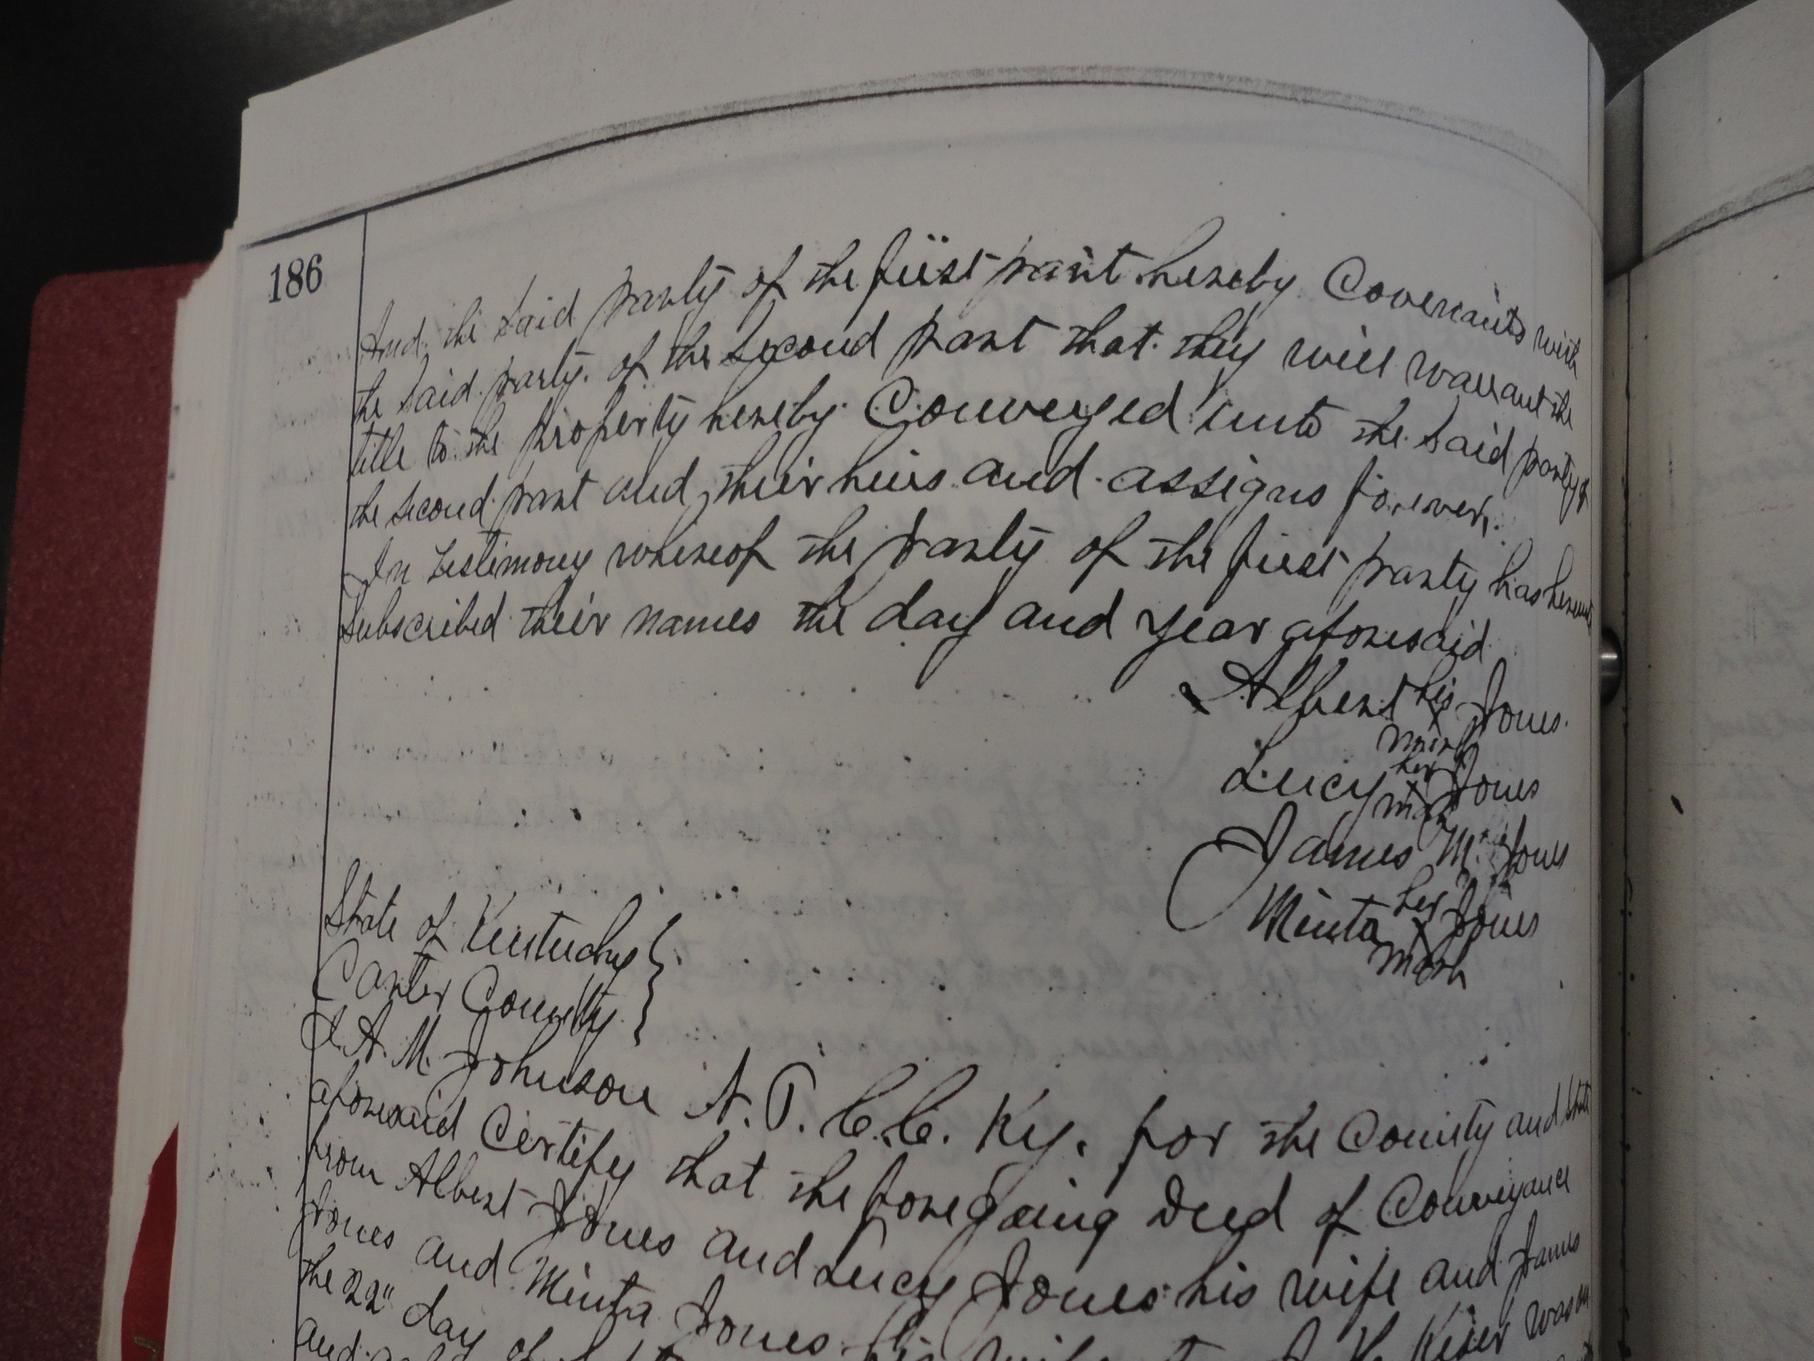 186
And the said party of the first part hereby Covenants with
the said party of the second part that they will warrant the
title to the property hereby Conveyed unto the said party of
the second part and their heirs and assigns forever.
In testimony whereof the party of the first party has hereunto
subscribed their names the day and year aforesaid
Albert his x mark Jones.
Lucy her x mark Jones
James M. Jones
Minta her x mark Jones
State of Kentucky
Carter County
I A. M. Johnson N. P. C. C. Ky. for the County and State
aforesaid Certify that the foregoing Deed of Conveyance
from Albert Jones and Lucy Jones his wife and James
Jones and Minta Jones his wife to Kiser was on
the 22" day of
and